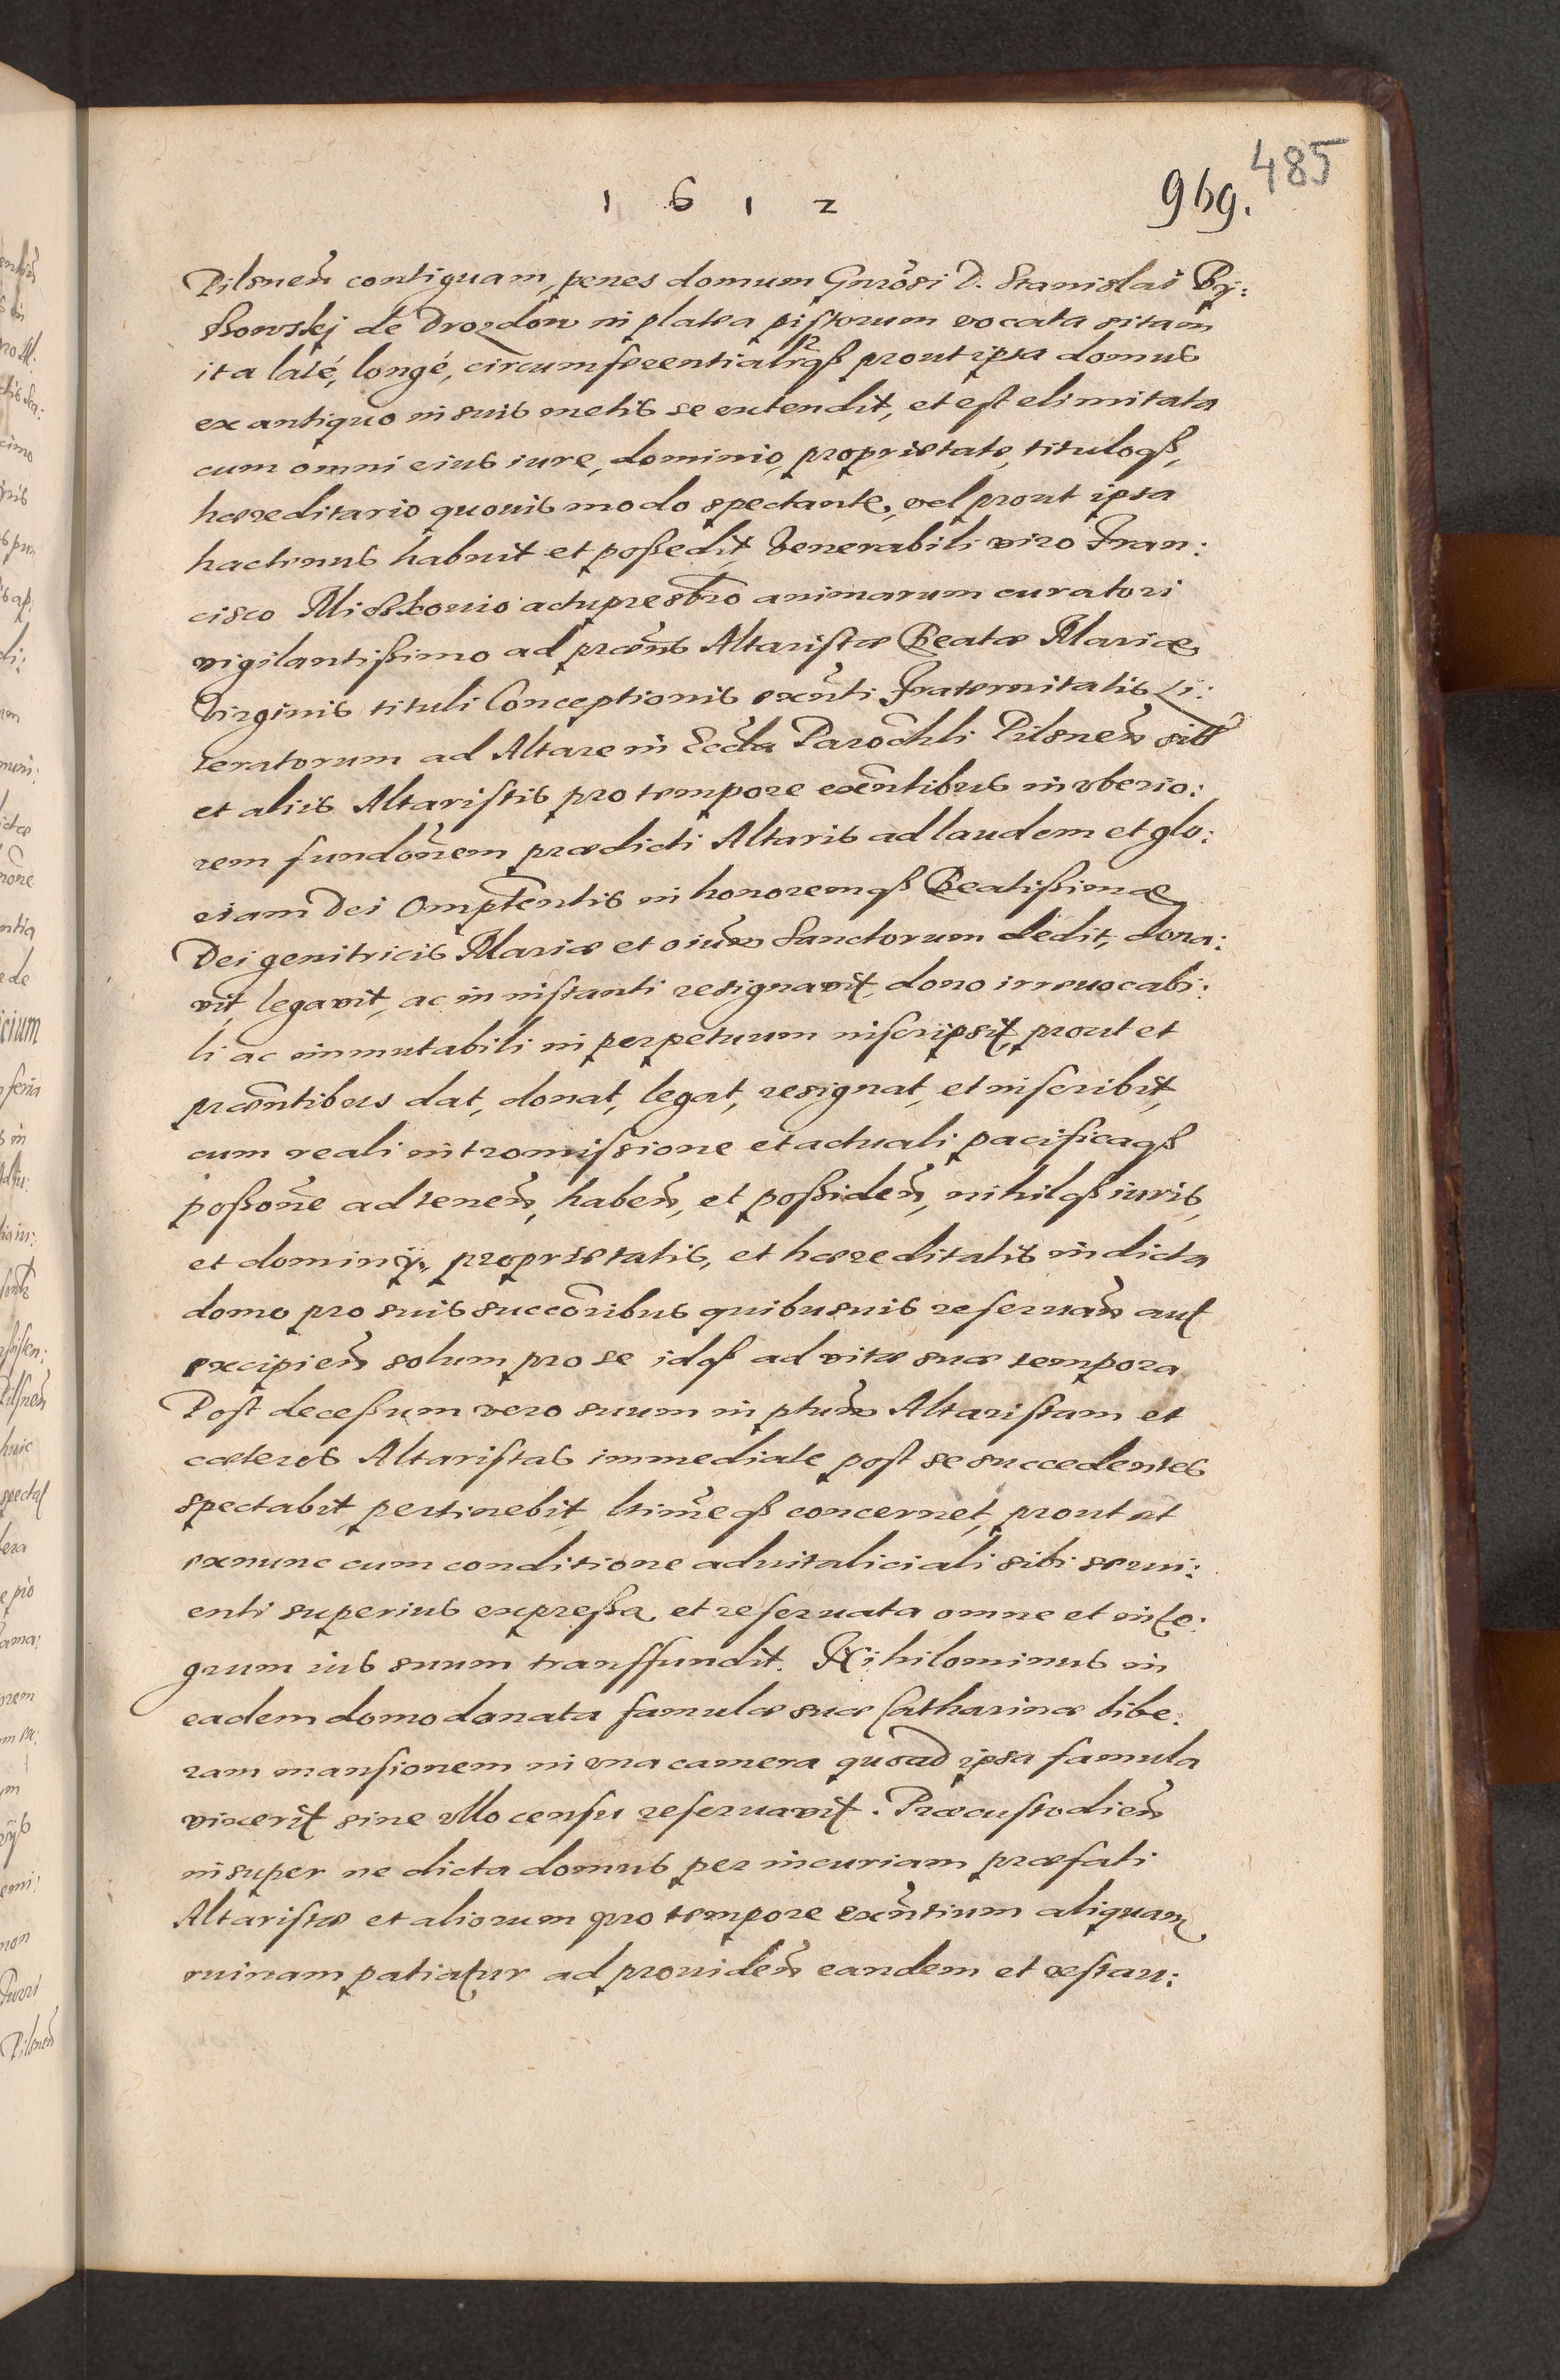 485
1612
969.
Pilsneñ contiguam, penes domum Gnrõsi D. Stanislai By:
ßowskj de Drozdow in platea pistorum vocata sitam
ita laté, longé, circumferentialrqß prout ipsa domus
ex antiquo in suis metis se extendit, et est elimitata
cum omni eius iure, dominio, proprietate, tituloqß,
hæreditario quouis modo spectante, vel prout ipsa
hactenus habuit et poßedit, Venerabili viro Fran:
cisco Mioskouio actupresbro animarum curatori
vigilantißimo ad præñs Altaristæ Beatæ Mariæ
Virginis tituli Conceptionis exñti Fraternitatis Li:
teratorum ad Altare in Eccla Parochli Pilsneñ sitt
et aliis Altaristis pro tempore exẽntibus in vberio:
rem fundõnem prædicti Altaris ad laudem et glo:
riam Dei Omptentis in honoremqß Beatißimæ
Dei genitricis Mariæ et oiũm Sanctorum dedit, dona:
vit, legavit, ac in instanti resignavit, dono irreuocabi:
li ac immutabili in perpetuum inscripsit, prout et
præntibus dat, donat, legat, resignat, et inscribit,
cum reali intromissione et actuali pacificaqß
poßone ad teneñ, habeñ, et poßideñ, nihilqß iuris,
et dominij, proprietatis, et hæreditatis in dicta
domo pro suis succoribus quibusuis reseruañ aut
excipieñ solum pro se idqß ad vitæ suæ tempora
Post deceßum vero suum in ptum Altaristam et
cæteros Altaristas immediate post se succedentes
spectabit, pertinebit, ltimeqß concernet, prout et
exnunc cum conditione aduitaliciali sibi serui:
enti superius expreßa et reseruata omne et inte:
grum ius suum transfundit. Nihilominus in
eadem domo donata famulæ suæ Catharinæ libe:
ram mansionem in vna camera quoad ipsa famula
vixerit sine vllo censu reseruavit. Præcustodieñ
insuper ne dicta domus per incuriam præfati
Altaristæ et aliorum pro tempore exñtium aliquam
ruinam patiatur ad prouideñ eandem et restau: